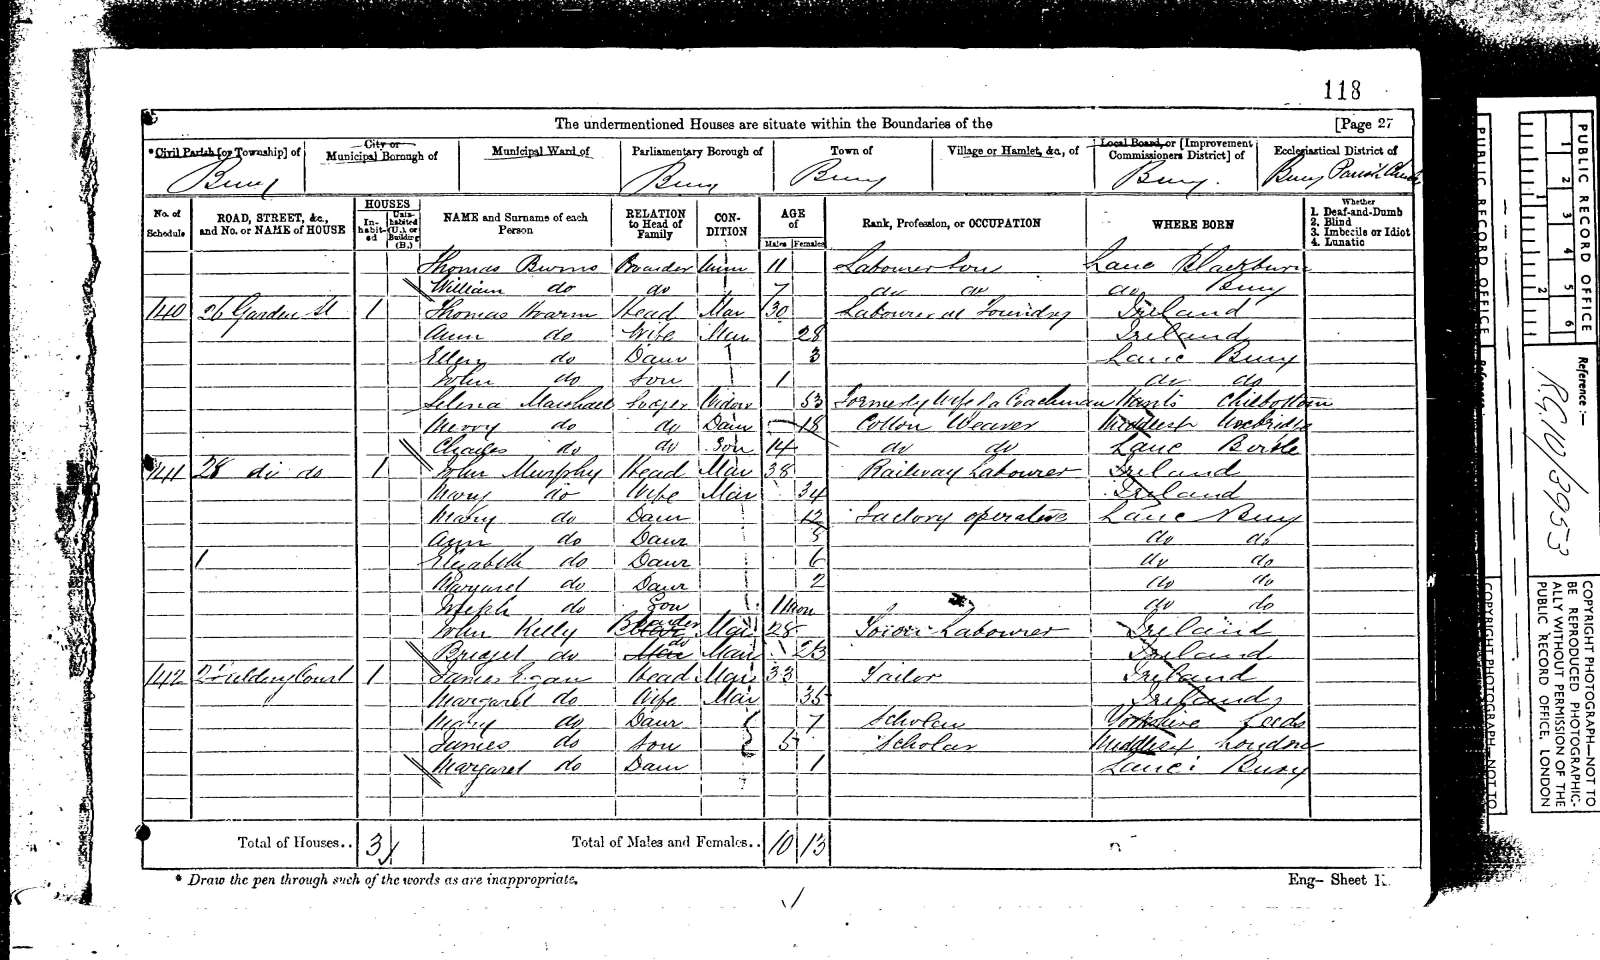 118
The undermentioned Houses are situate within the Boundaries of the [Page 27
*Civil Parish [or Township] of
City or Municipal Borough of
Municipal Ward of
Parliamentary Borough of
Town of
Village or Hamlet, &c., of
Local Board, or [Improvement Commissioners District] of
Ecclesiastical District of
Bury Bury Bury Bury. Bury Parish Church
No. of Schedule
ROAD, STREET, &c., and No. or NAME of HOUSE
HOUSES
Inhabited
Uninhabited (U.), or Building (B.)
NAME and Surname of each Person
RELATION to Head of Family
CONDITION
AGE of
Males Females
Rank, Profession, or OCCUPATION
WHERE BORN
Whether
1. Deaf-and-Dumb
2. Blind
3. Imbecile or Idiot
4. Lunatic
Thomas Burns Boarder Unm 11 Labourer Son Lanc Blackburn
William do do 7 do do do Bury
140 26 Garden St 1 Thomas Head Mar 30 Labourer at Foundry Ireland
Ann do Wife Mar 28 Ireland
Ellen do Daur 3 Lanc Bury
John do Son 1 do do
Selina Marshall Lodger Widow 53 Formerly Wife to Coachman Hants
do do Daur 18 Cotton Weaver Middlesex Uxbridge
Charles do do Son 14 do do Lanc
141 28 do do 1 John Murphy Head Mar 38 Railway Labourer Ireland
Mary do Wife Mar 34 Ireland
Mary do Daur 12 Factory operative Lanc Bury
Ann do Daur do do
Elizabeth do Daur 6 do do
Margaret do Daur 2 do do
Joseph do Son 1 Mon do do
John Kelly Boarder Mar 28 Labourer Ireland
Bridget do do Mar 23 Ireland
142 2 Fielding Court 1 James Egan Head Mar 33 Tailor Ireland
Margaret do Wife Mar 35 Ireland
Mary do Daur 7 Scholar Yorkshire Leeds
James do Son 5 Scholar Middlesex London
Margaret do Daur 1 Lanc: Bury
Total of Houses.. 3 Total of Males and Females.. 10 13
* Draw the pen through such of the words as are inappropriate.
Eng— Sheet K.
PUBLIC RECORD OFFICE
1 2 3 4 5 6
Reference:—
RG 10/3953
COPYRIGHT PHOTOGRAPH—NOT TO BE REPRODUCED PHOTOGRAPHICALLY WITHOUT PERMISSION OF THE PUBLIC RECORD OFFICE, LONDON
PUBLIC RECORD OFFICE
COPYRIGHT PHOTOGRAPH—NOT TO